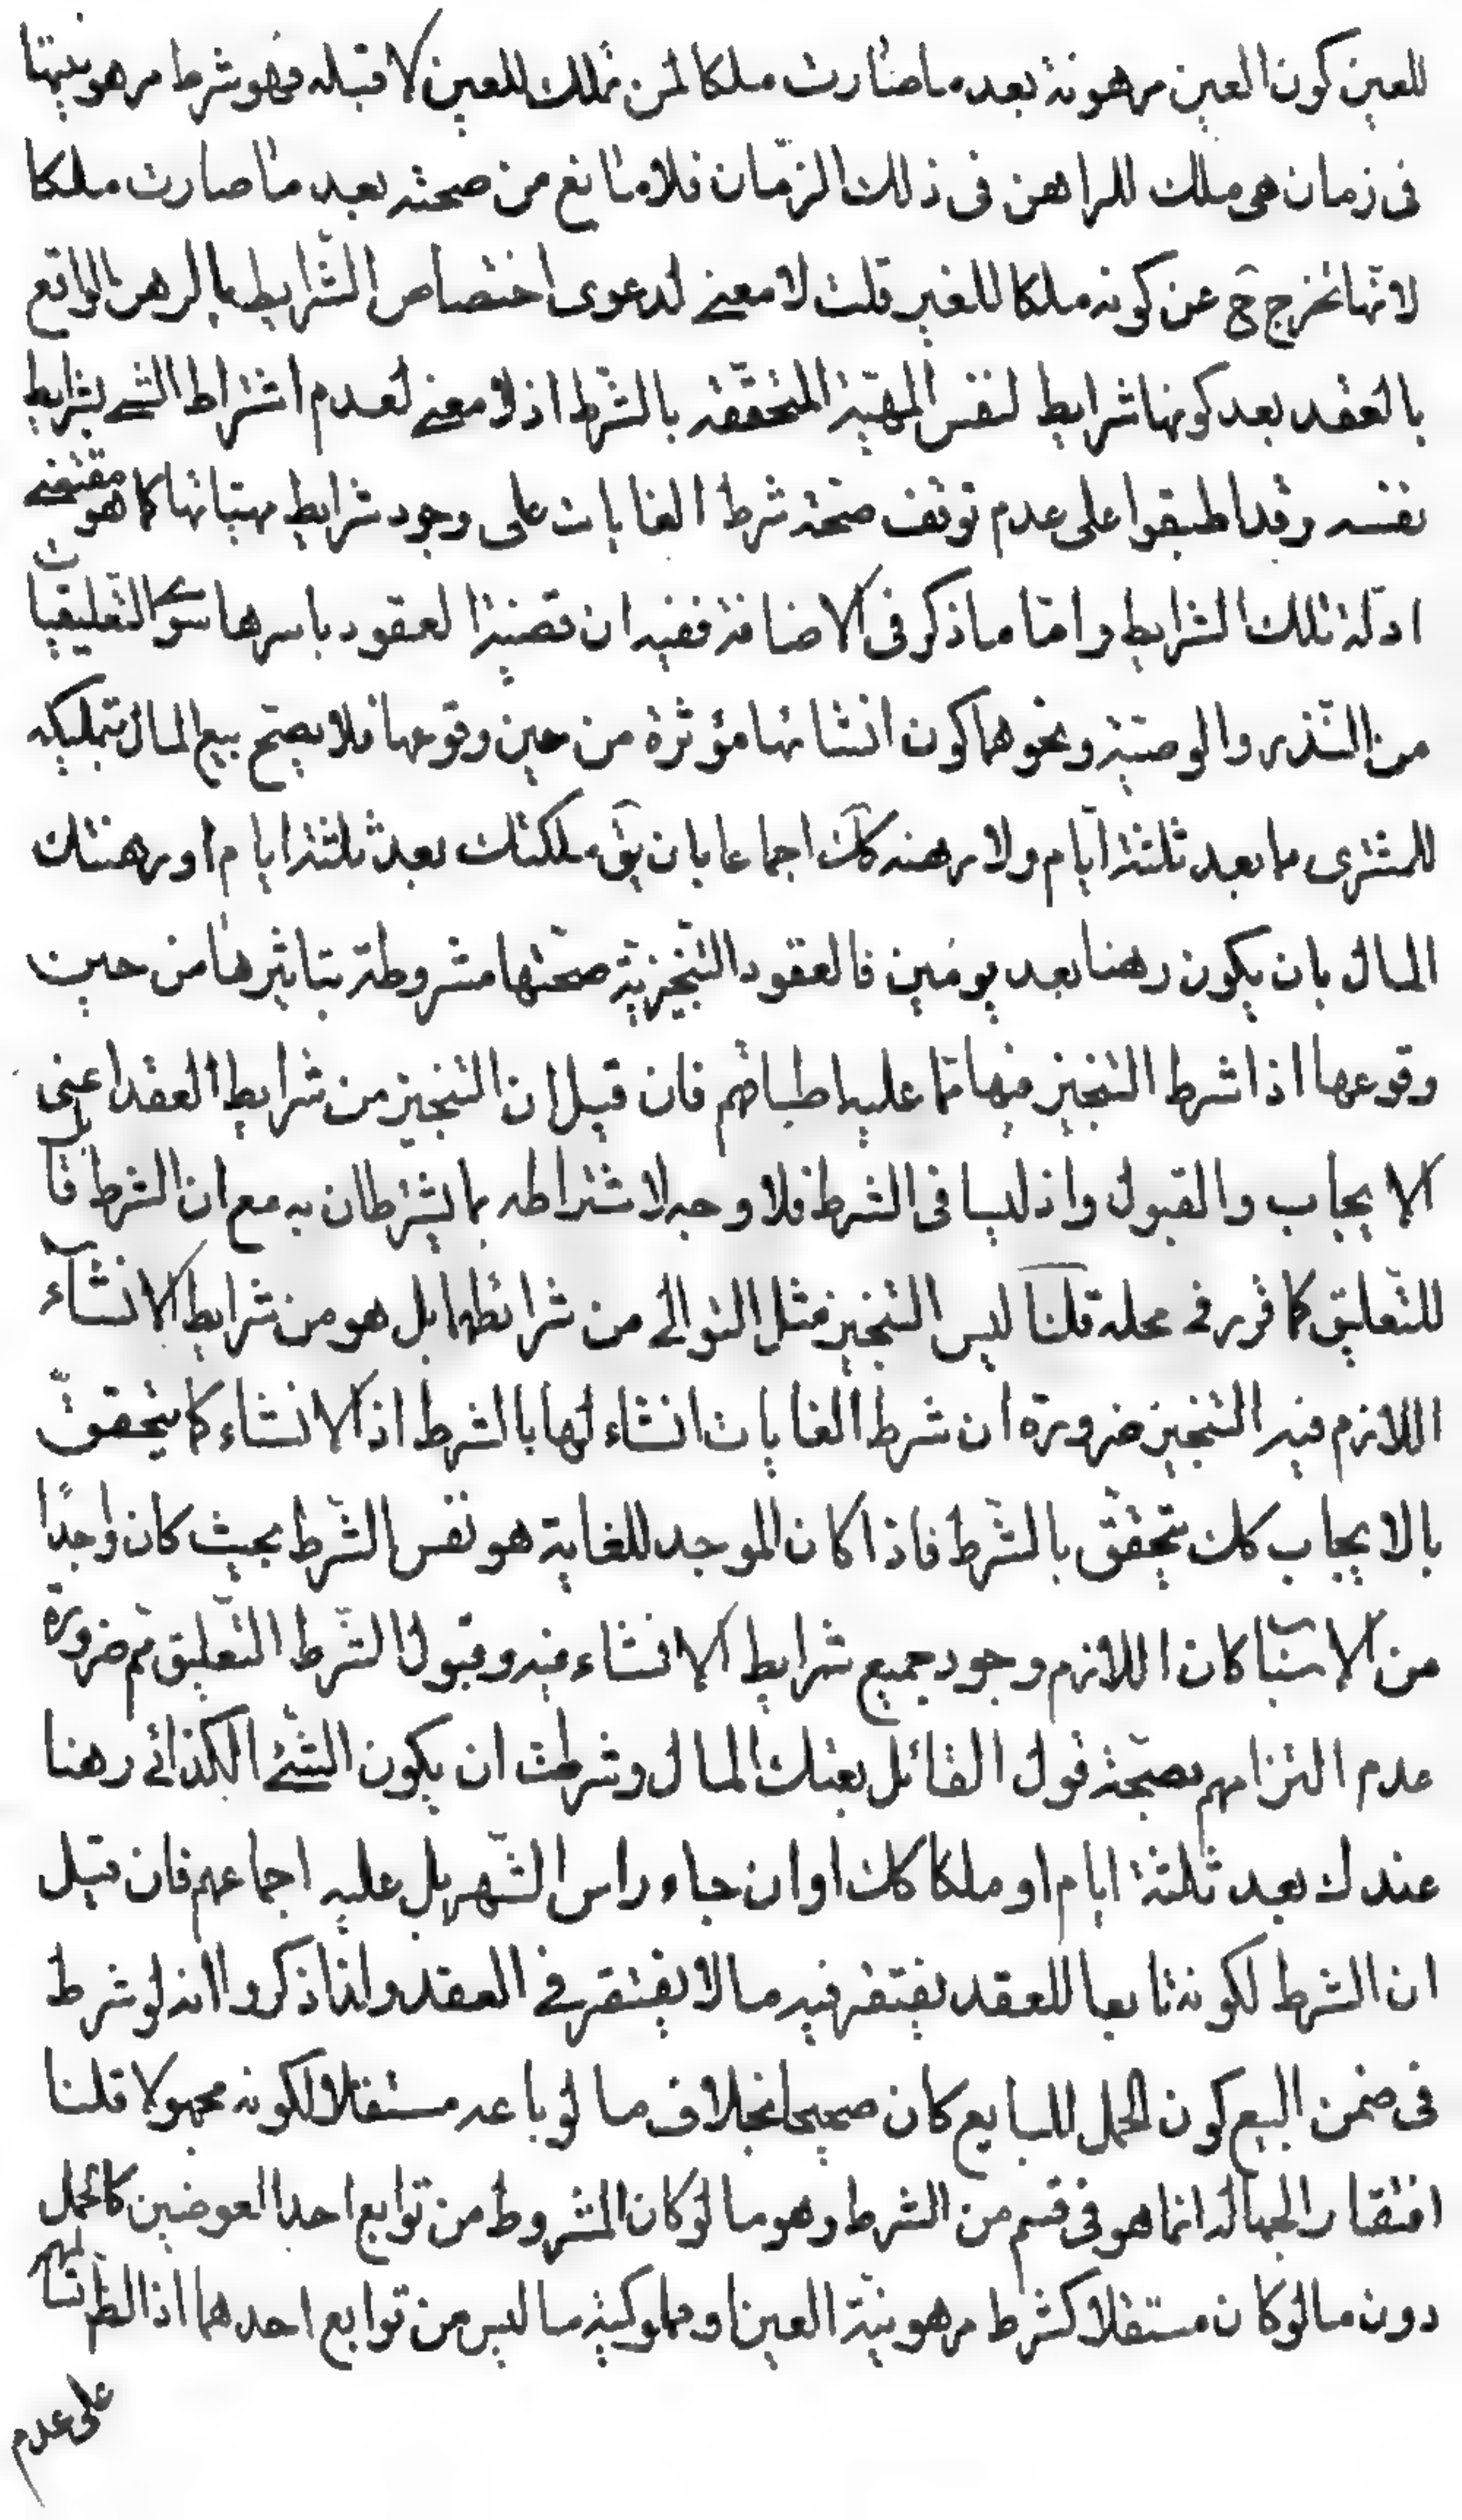 للعين كون العين مرهونة بعد ما صارت ملكا لمن تملك للعين لا قبله فهو شرط مرهونيتها
فى زمان هى ملك للراهن فى ذلك الزمان فلا مانع من صحته بعد ما صارت ملكا
لانها تخرج ح عن كونه ملكا للغير قلت لا معنى لدعوى اختصاص الشرايط بالرهن الواقع
بالعقد بعد كونها شرايط لنفس المهيّة المتحققة بالشرط اذ لا معنى لعدم اشتراط الشئ بشرايط
نفسه وقد اطبقوا على عدم توقف صحة شرط الغايات على وجود شرايط مهيّاتها كما هو مقتضى
ادلة تلك الشرايط واما ما ذكر فى الاضافة ففيه ان قضية العقود باسرها سوى التعليقيات
من النذر والوصيّة ونحوهما كون انشائها مؤثرة من حين وقوعها فلا يصحّ بيع المال بتمليكه
للمشترى ما بعد ثلثة ايّام ولا رهنه كك اجماعا بان يق ملكتك بعد ثلثة ايام او رهنتك
المال بان يكون رهنا بعد يومين فالعقود التنجيزيّة صحّتها مشروطة بتاثيرها من حين
وقوعها اذا شرط التنجيز فيها مما عليه اطباقهم فان قيل ان التنجيز من شرايط العقد اعنى
الايجاب والقبول واذ ليسا فى الشرط فلا وجه لاشتراطه بما يشترطان به مع ان الشرط قابل
للتعليق كما قرر فى محله قلنا ليس التنجيز مثل التوالى من شرائطهما بل هو من شرايط الانشاء
اللازم فيه التنجيز ضرورة ان شرط الغايات انشاء لها بالشرط اذ الانشاء كما يتحقق
بالايجاب كك يتحقق بالشرط فاذا كان الموجد للغاية هو نفس الشرط بحيث كان واجدًا
من الاسباب كان اللازم وجود جميع شرايط الانشاء فيه وقبول الشرط التعليق مم ضرورة
عدم التزامهم بصحّة قول القائل بعتك المال وشرطت ان يكون الشئ الكذائى رهنا
عندك بعد ثلثة ايام او ملكا كك او ان جاء راس الشهر بل عليه اجماعهم فان قيل
ان الشرط لكونه تابعا للعقد يغتفر فيه ما لا يغتفر فى العقد ولذا ذكروا انه لو شرط
فى ضمن البيع كون الحمل للبايع كان صحيحا بخلاف ما لو باعه مستقلا لكونه مجهولا قلنا
اغتفار الجهالة انما هو فى قسم من الشرط وهو ما لو كان المشروط من توابع احد العوضين كالحمل
دون ما لو كان مستقلا كشرط مرهونيّة العين او مملوكيّة ما ليس من توابع احدهما اذ الظ تسالمهم
على عدم